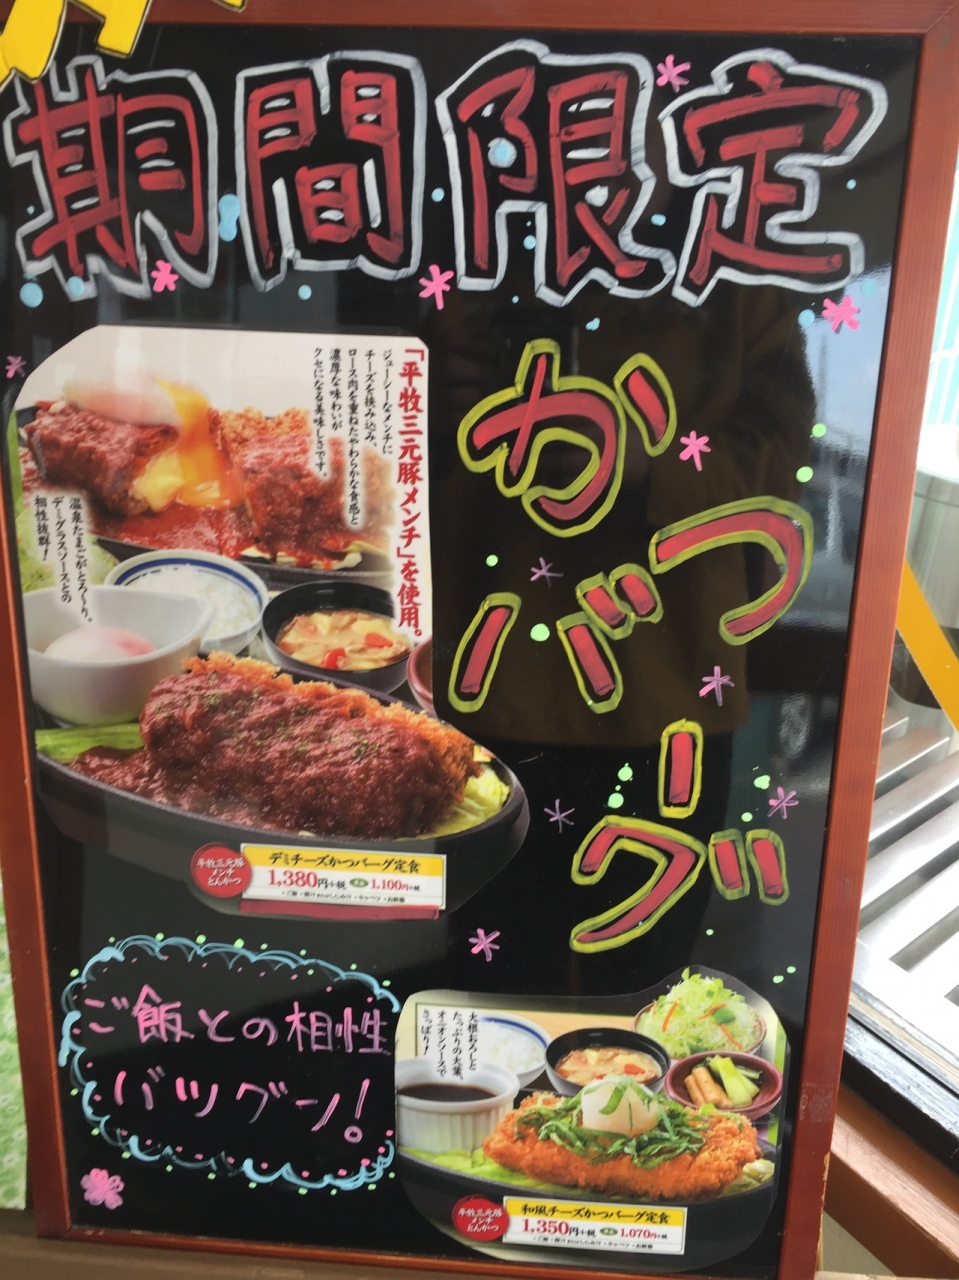 期間限定
かつバーグ
「平牧三元豚メンチ」を使用。
ジューシーなメンチに
チーズを挟み込み、
ロース肉を重ねたやわらかな食感と
濃厚な味わいが
クセになる美味しさです。
温泉たまごがとろ〜り。
デミグラスソースとの
相性抜群!
平牧三元豚
メンチ
とんかつ
デミチーズかつバーグ定食
1,380円+税 単品 1,100円+税
ご飯の相性
バツグン!
大根おろしと
たっぷりの大葉。
オニオンソースで
さっぱり!
平牧三元豚
メンチ
とんかつ
和風チーズかつバーグ定食
1,350円+税 単品 1,070円+税